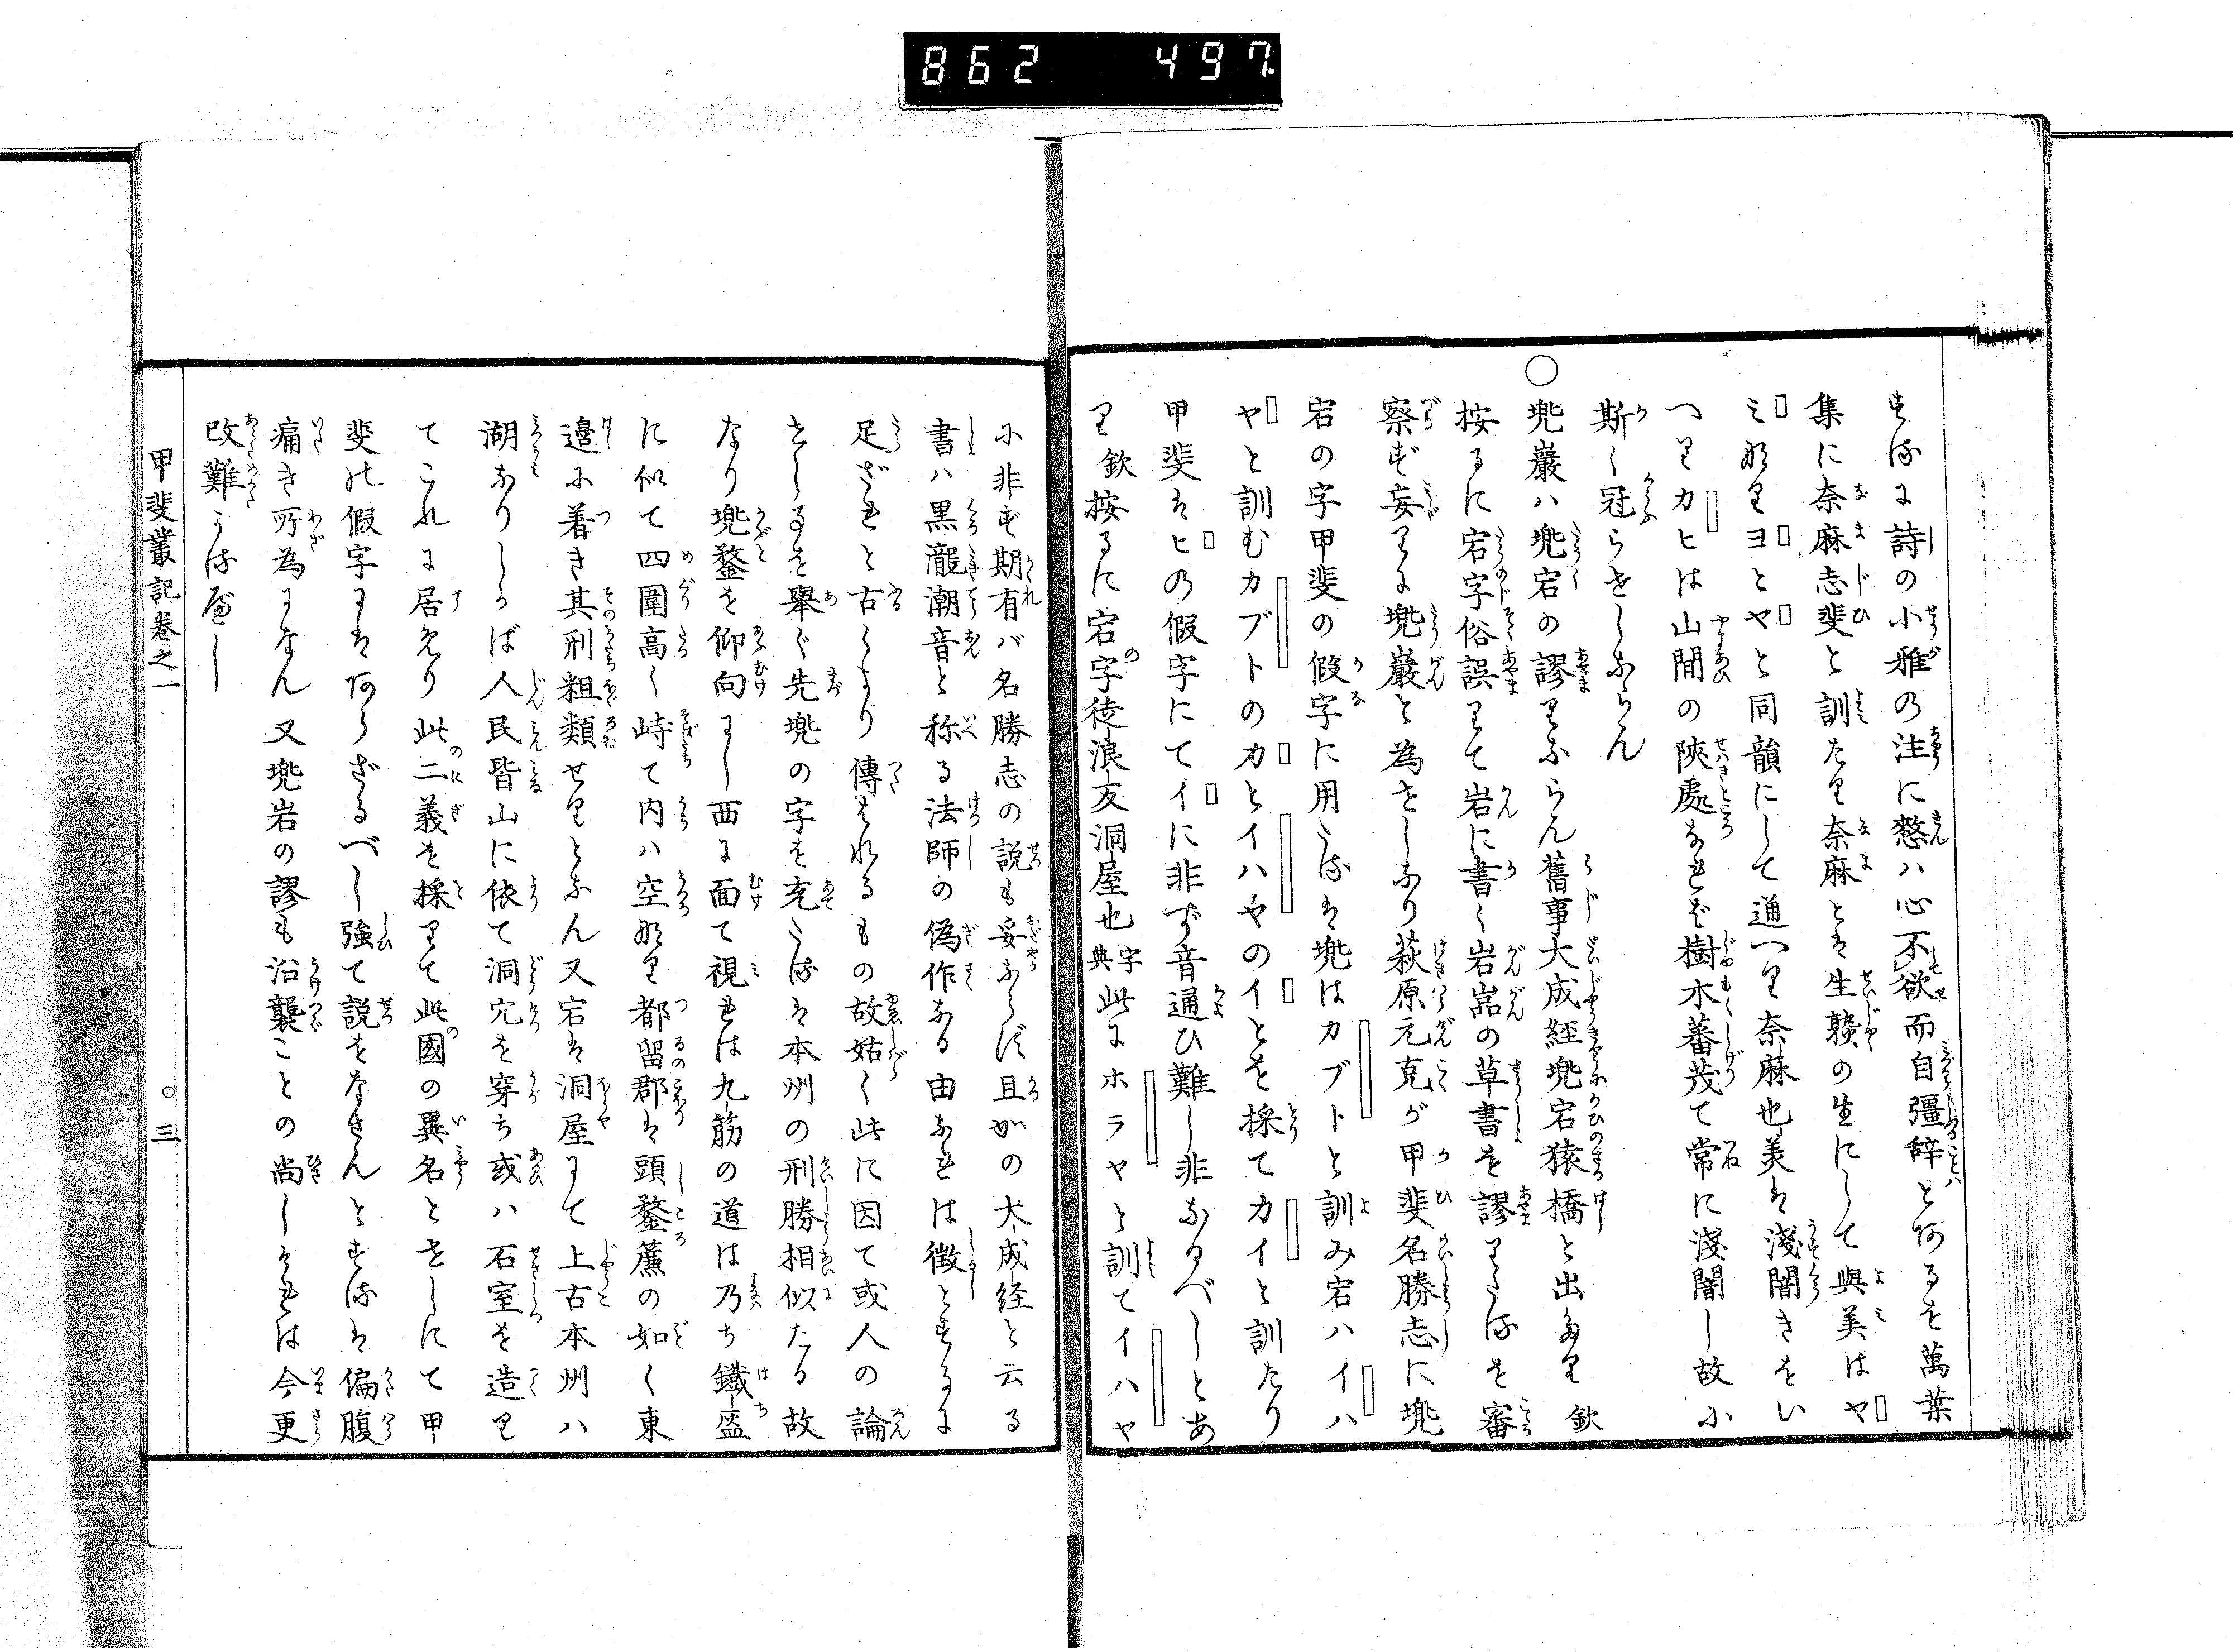 862 497
するに詩の小雅の注に憖ハ心不欲而自彊辞とあるを萬葉
集に奈麻志斐と訓たり奈麻とは生贅の生にして與美はヤ
ミなりヨとヤと同韻にして通へり奈麻也美は淺闇きをい
へりカヒは山間の陜處なれば樹木蕃茂て常に淺闇し故に
斯く冠らせしならん
○兠巖ハ兠宕の謬りならん舊事大成経兠宕猿橋と出たり 欽
按るに宕字俗誤りて岩に書く岩嵓の草書を謬りたるを審
察ず妄りに兠巖と為せしなり萩原元克が甲斐名勝志に兠
宕の字甲斐の假字に用うるは兠はカブトと訓み宕ハイハ
ヤと訓むカブトのカとイハヤのイとを採てカイと訓たり
甲斐はヒの假字にてイに非ず音通ひ難し非なるべしとあ
り 欽按るに宕字徒浪友洞屋也 字典 此にホラヤと訓てイハヤ
に非ず期有バ名勝志の説も妥ならず且かの大成経と云る
書ハ黒瀧潮音と称る法師の偽作なる由なれは徴とするに
足ざれと古くより傳はれるもの故姑く此に因て或人の論
せしるを擧ぐ先兠の字を充うるは本州の刑勝相似たる故
なり兠鍪を仰向にし西に面て視れは九筋の道は乃ち鐵盔
に似て四圍高く峙て内ハ空なり都留郡は頭鍪簷の如く東
邉に着き其刑粗類せりとなん又宕は洞屋にて上古本州ハ
湖なりしかば人民皆山に依て洞穴を穿ち或ハ石室を造り
てこれに居たり此二義を採りて此國の異名とせしにて甲
斐の假字にはあらざるべし強て説をなさんとするは偏腹
痛き所為になん又兠岩の謬も沿襲ことの尚しければ今更
改難かるべし
甲斐叢記巻之一 ○三